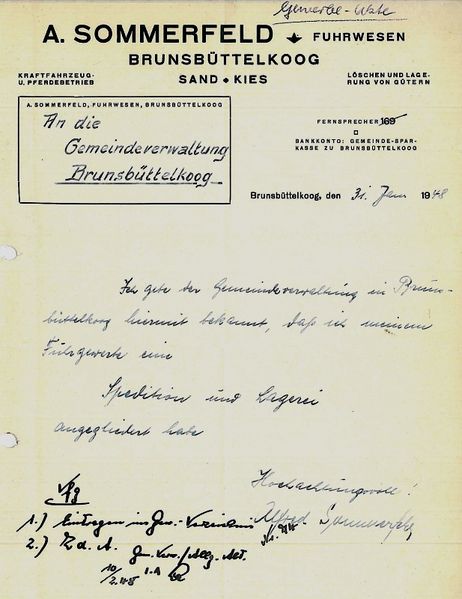 Gewerbe-Akte
A. SOMMERFELD FUHRWESEN
BRUNSBÜTTELKOOG
SAND • KIES
KRAFTFAHRZEUG-
U. PFERDEBETRIEB
LÖSCHEN UND LAGE-
RUNG VON GÜTERN
A. SOMMERFELD, FUHRWESEN, BRUNSBÜTTELKOOG
An die
Gemeindeverwaltung
Brunsbüttelkoog
FERNSPRECHER 169
BANKKONTO: GEMEINDE-SPAR-
KASSE ZU BRUNSBÜTTELKOOG
Brunsbüttelkoog, den 31. Jan 1948
Ich gebe der Gemeindeverwaltung in Bruns-
büttelkoog hiermit bekannt, daß ich meinem
Fuhrgewerbe eine
Spedition und Lagerei
angegliedert habe
Hochachtungsvoll!
Alfred Sommerfeld
1.) Eintragen in Gew.-Verzeichnis
2.) Z. d. A.
10/2.48 i.A.